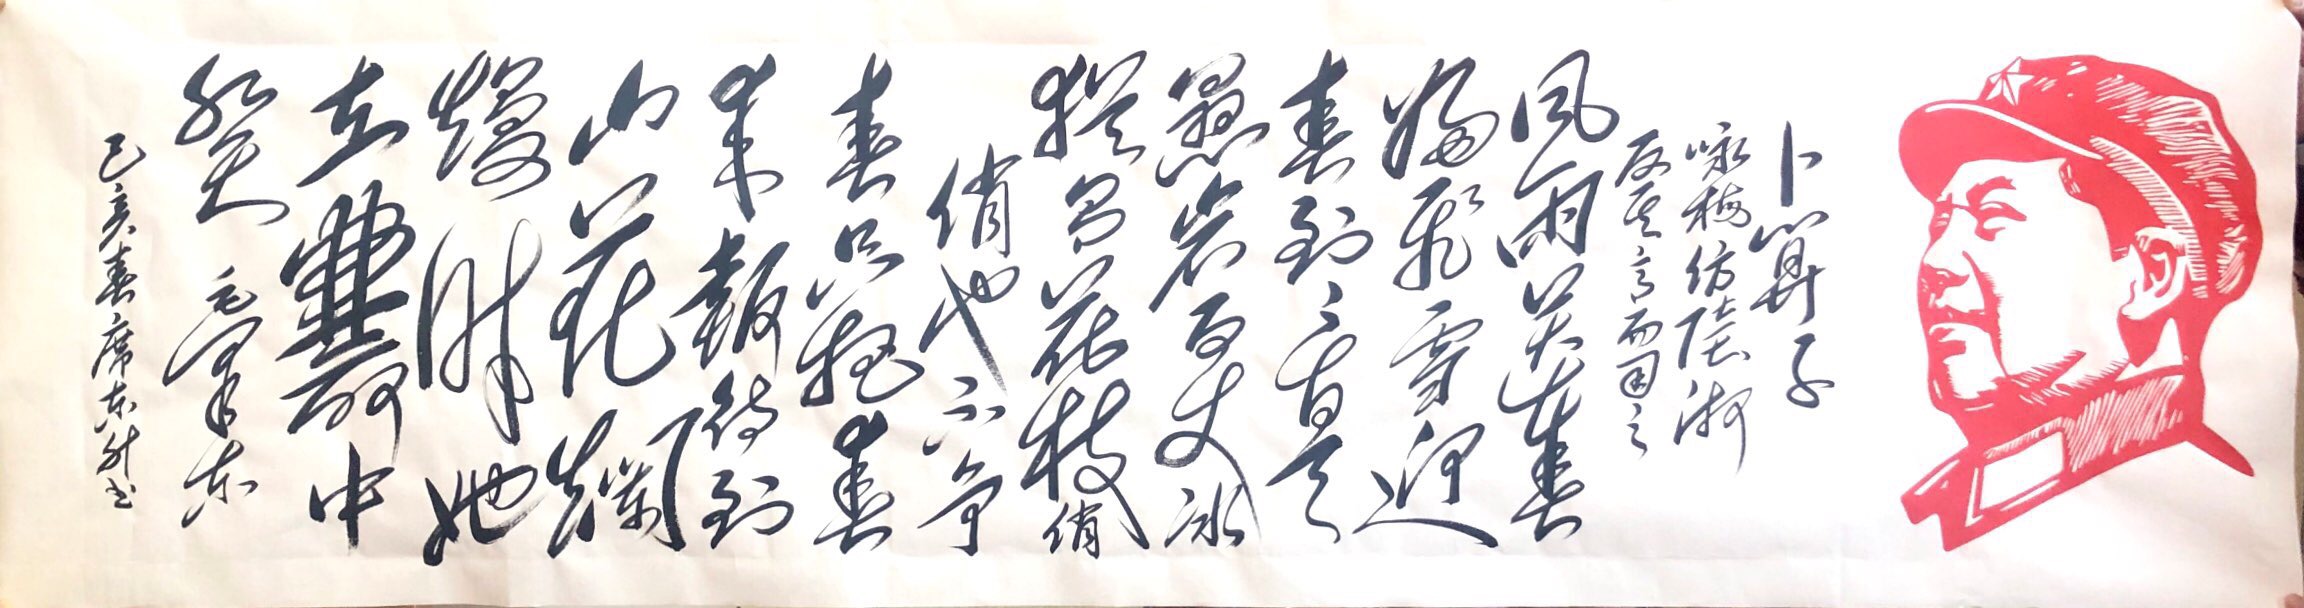 卜算子
咏梅仿陸游
反其意而用之
风雨送春
歸飛雪迎
春到已是
悬岩百丈冰
犹有花枝俏
俏也不争
春只把春
来報待到
山花烂
熳时她
在叢中
笑 毛泽东
己亥春席东升书